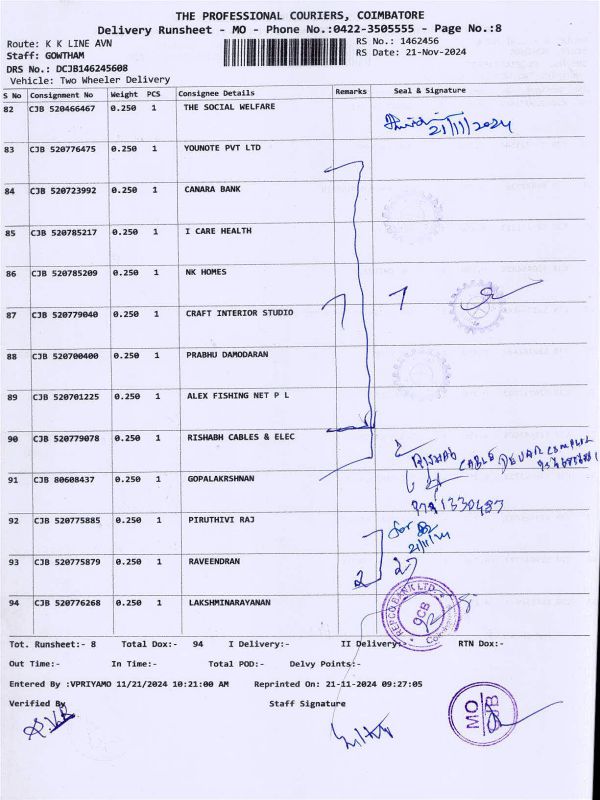 THE PROFESSIONAL COURIERS, COIMBATORE
Delivery Runsheet - MO - Phone No.:0422-3505555 - Page No.:8
Route: K K LINE AVN RS No.: 1462456
Staff: GOWTHAM RS Date: 21-Nov-2024
DRS No.: DCJB146245608
Vehicle: Two Wheeler Delivery
S No Consignment No Weight PCS Consignee Details Remarks Seal & Signature
82 CJB 520466467 0.250 1 THE SOCIAL WELFARE
21/11/2024
83 CJB 520776475 0.250 1 YOUNOTE PVT LTD
84 CJB 520723992 0.250 1 CANARA BANK
85 CJB 520785217 0.250 1 I CARE HEALTH
86 CJB 520785209 0.250 1 NK HOMES
7 1
87 CJB 520779040 0.250 1 CRAFT INTERIOR STUDIO
88 CJB 520700400 0.250 1 PRABHU DAMODARAN
89 CJB 520701225 0.250 1 ALEX FISHING NET P L
90 CJB 520779078 0.250 1 RISHABH CABLES & ELEC
RISHAB CABLE
91 CJB 80608437 0.250 1 GOPALAKRSHNAN
92 CJB 520775885 0.250 1 PIRUTHIVI RAJ
for
21/11/24
93 CJB 520775879 0.250 1 RAVEENDRAN
2 27
94 CJB 520776268 0.250 1 LAKSHMINARAYANAN
REPCO BANK LTD.
Tot. Runsheet:- 8 Total Dox:- 94 I Delivery:- II Delivery:- RTN Dox:-
Out Time:- In Time:- Total POD:- Delvy Points:-
Entered By :VPRIYAMO 11/21/2024 10:21:00 AM Reprinted On: 21-11-2024 09:27:05
Verified By Staff Signature
MO
CJB